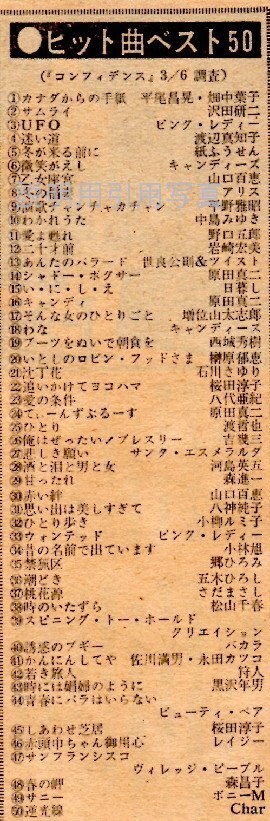 ●ヒット曲ベスト50
(『コンフィデンス』3/6 調査)
①カナダからの手紙 平尾昌晃・畑中葉子
②サムライ 沢田研二
③UFO ピンク・レディー
④迷い道 渡辺真知子
⑤冬が来る前に 紙ふうせん
⑥微笑がえし キャンディーズ
⑦乙女座宮 山口百恵
アリス
チャカチャン 平野雅昭
⑩わかれうた 中島みゆき
⑪愛よ甦れ 野口五郎
⑫二十才前 岩崎宏美
⑬あんたのバラード 世良公則&ツイスト
⑭シャドー・ボクサー 原田真二
⑮い・に・し・え 日暮し
⑯キャンディ 原田真二
⑰そんな女のひとりごと 増位山太志郎
⑱わな キャンディーズ
⑲ブーツをぬいで朝食を 西城秀樹
⑳いとしのロビン・フッドさま 榊原郁恵
㉑沈丁花 石川さゆり
㉒追いかけてヨコハマ 桜田淳子
㉓愛の条件 八代亜紀
㉔てぃーんずぶるーす 原田真二
㉕ひとり 渡哲也
㉖俺はぜったい!プレスリー 吉幾三
㉗悲しき願い サンタ・エスメラルダ
㉘酒と泪と男と女 河島英五
㉙甘ったれ 森進一
㉚赤い絆 山口百恵
㉛思い出は美しすぎて 八神純子
㉜ひとり歩き 小柳ルミ子
㉝ウォンテッド ピンク・レディー
㉞昔の名前で出ています 小林旭
㉟禁猟区 郷ひろみ
㊱潮どき 五木ひろし
㊲桃花源 さだまさし
㊳時のいたずら 松山千春
㊴スピニング・トー・ホールド
クリエイション
㊵誘惑のブギー バカラ
㊶かんにんしてや 佐川満男・永田カツコ
㊷若き旅人 狩人
㊸時には娼婦のように 黒沢年男
㊹青春にバラはいらない
ビューティ・ペア
㊺しあわせ芝居 桜田淳子
㊻赤頭巾ちゃん御用心 レイジー
㊼サンフランシスコ
ヴィレッジ・ピープル
㊽春の岬 森昌子
㊾サニー ボニーM
㊿逆光線 Char